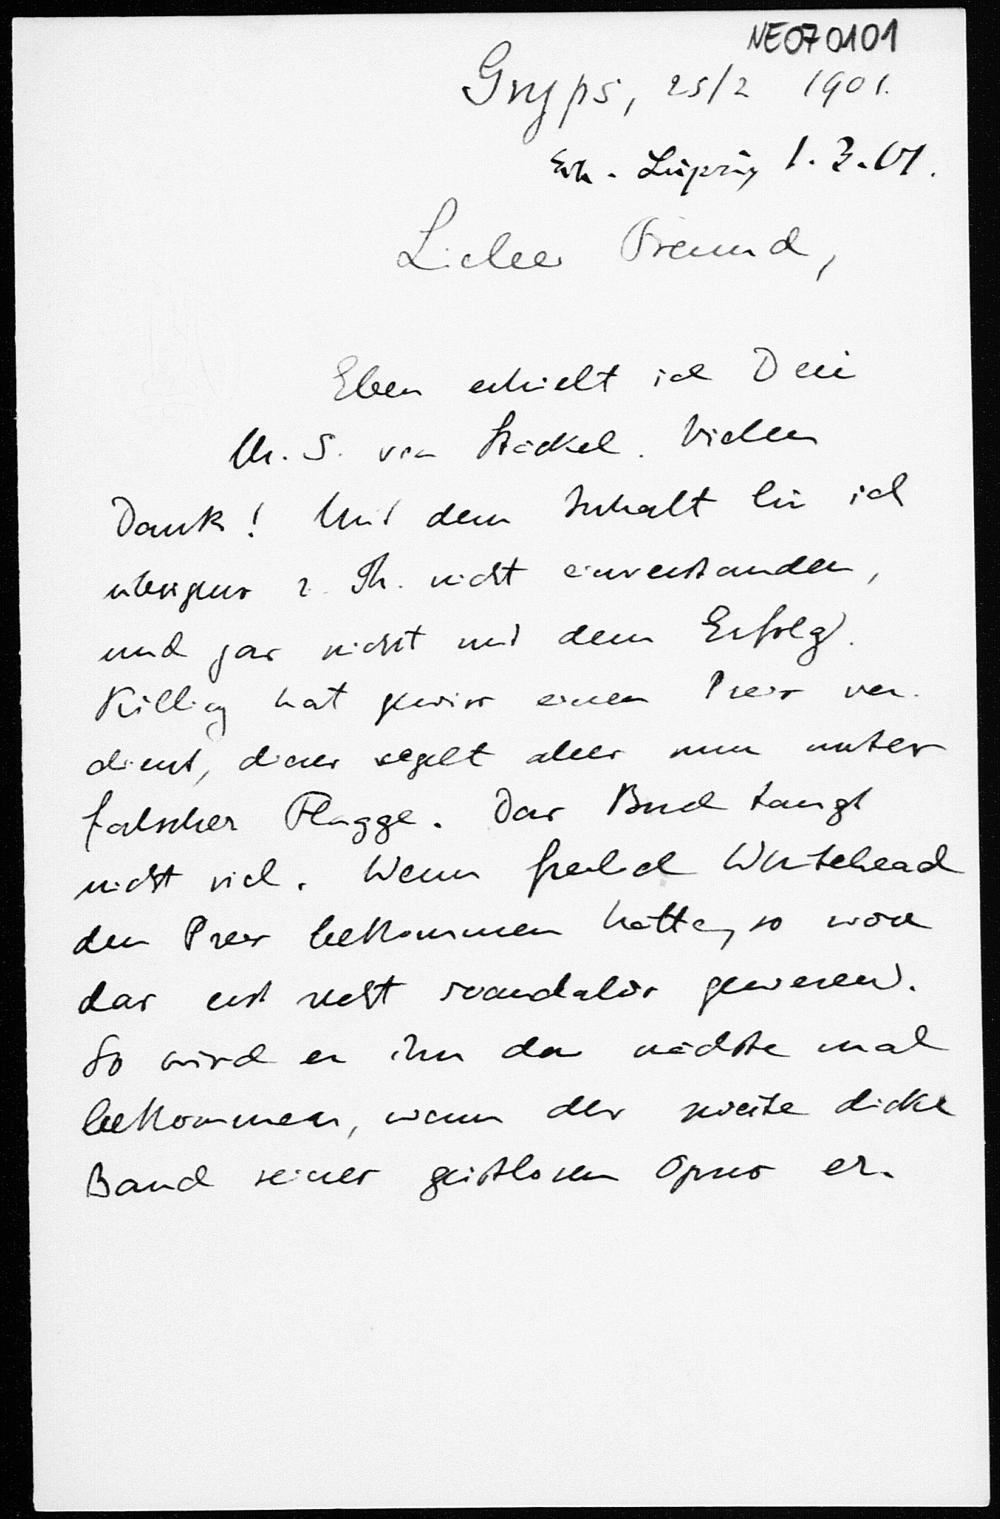 NE070101
Gryps, 25/2 1901.
Erh. Leipzig 1.3.01.
Lieber Freund,
Eben erhielt ich Dein
M. S. von Stäckel. Vielen
Dank! Mit dem Inhalt bin ich
übrigens z. Th. nicht einverstanden,
und gar nicht mit dem Erfolg.
Killing hat gewiss einen Preis ver-
dient, dieser segelt aber nun unter
falscher Flagge. Das Buch taugt
nicht viel. Wenn freilich Whitehead
den Preis bekommen hätte, so wäre
das erst recht scandalös gewesen.
So wird er ihn das nächste mal
bekommen, wenn der zweite dicke
Band seines geistlosen Opus er-